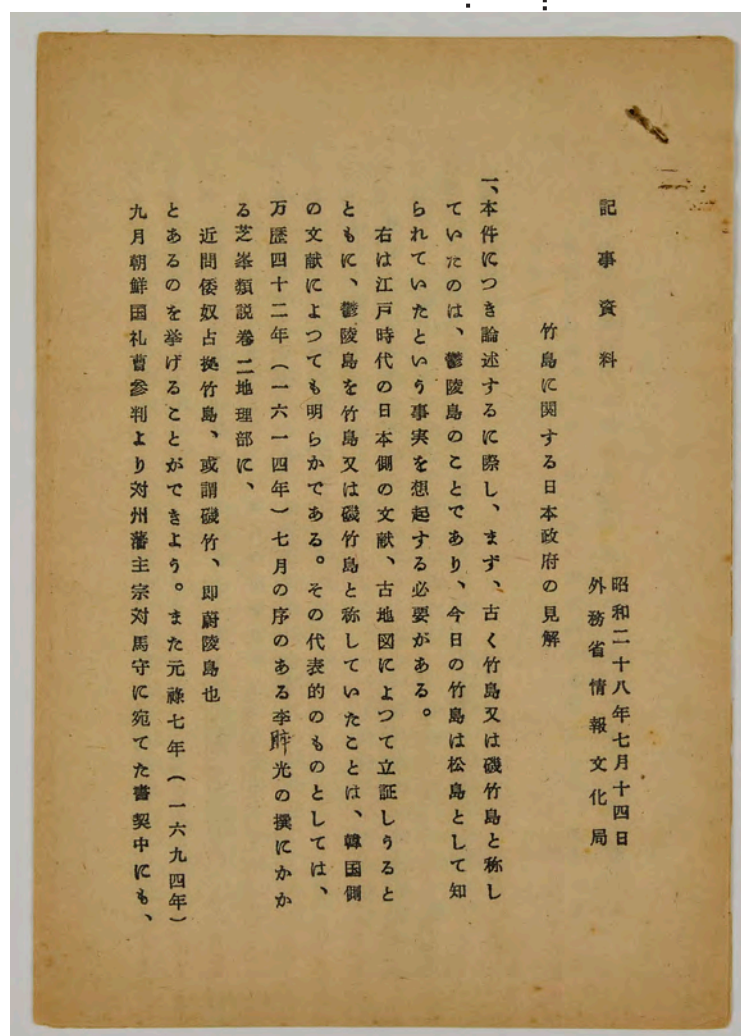 記事資料
昭和二十八年七月十四日
外務省情報文化局
竹島に関する日本政府の見解
一、本件につき論述するに際し、まず、古く竹島又は磯竹島と称し
ていたのは、鬱陵島のことであり、今日の竹島は松島として知
られていたという事実を想起する必要がある。
右は江戸時代の日本側の文献、古地図によつて立証しうると
ともに、鬱陵島を竹島又は磯竹島と称していたことは、韓国側
の文献によつても明らかである。その代表的のものとしては、
万歴四十二年(一六一四年)七月の序のある李睟光の撰にかか
る芝峯類説巻二地理部に、
近問倭奴占拠竹島、或謂磯竹、即蔚陵島也
とあるのを挙げることができよう。また元祿七年(一六九四年)
九月朝鮮国礼曹参判より対州藩主宗対馬守に宛てた書契中にも、